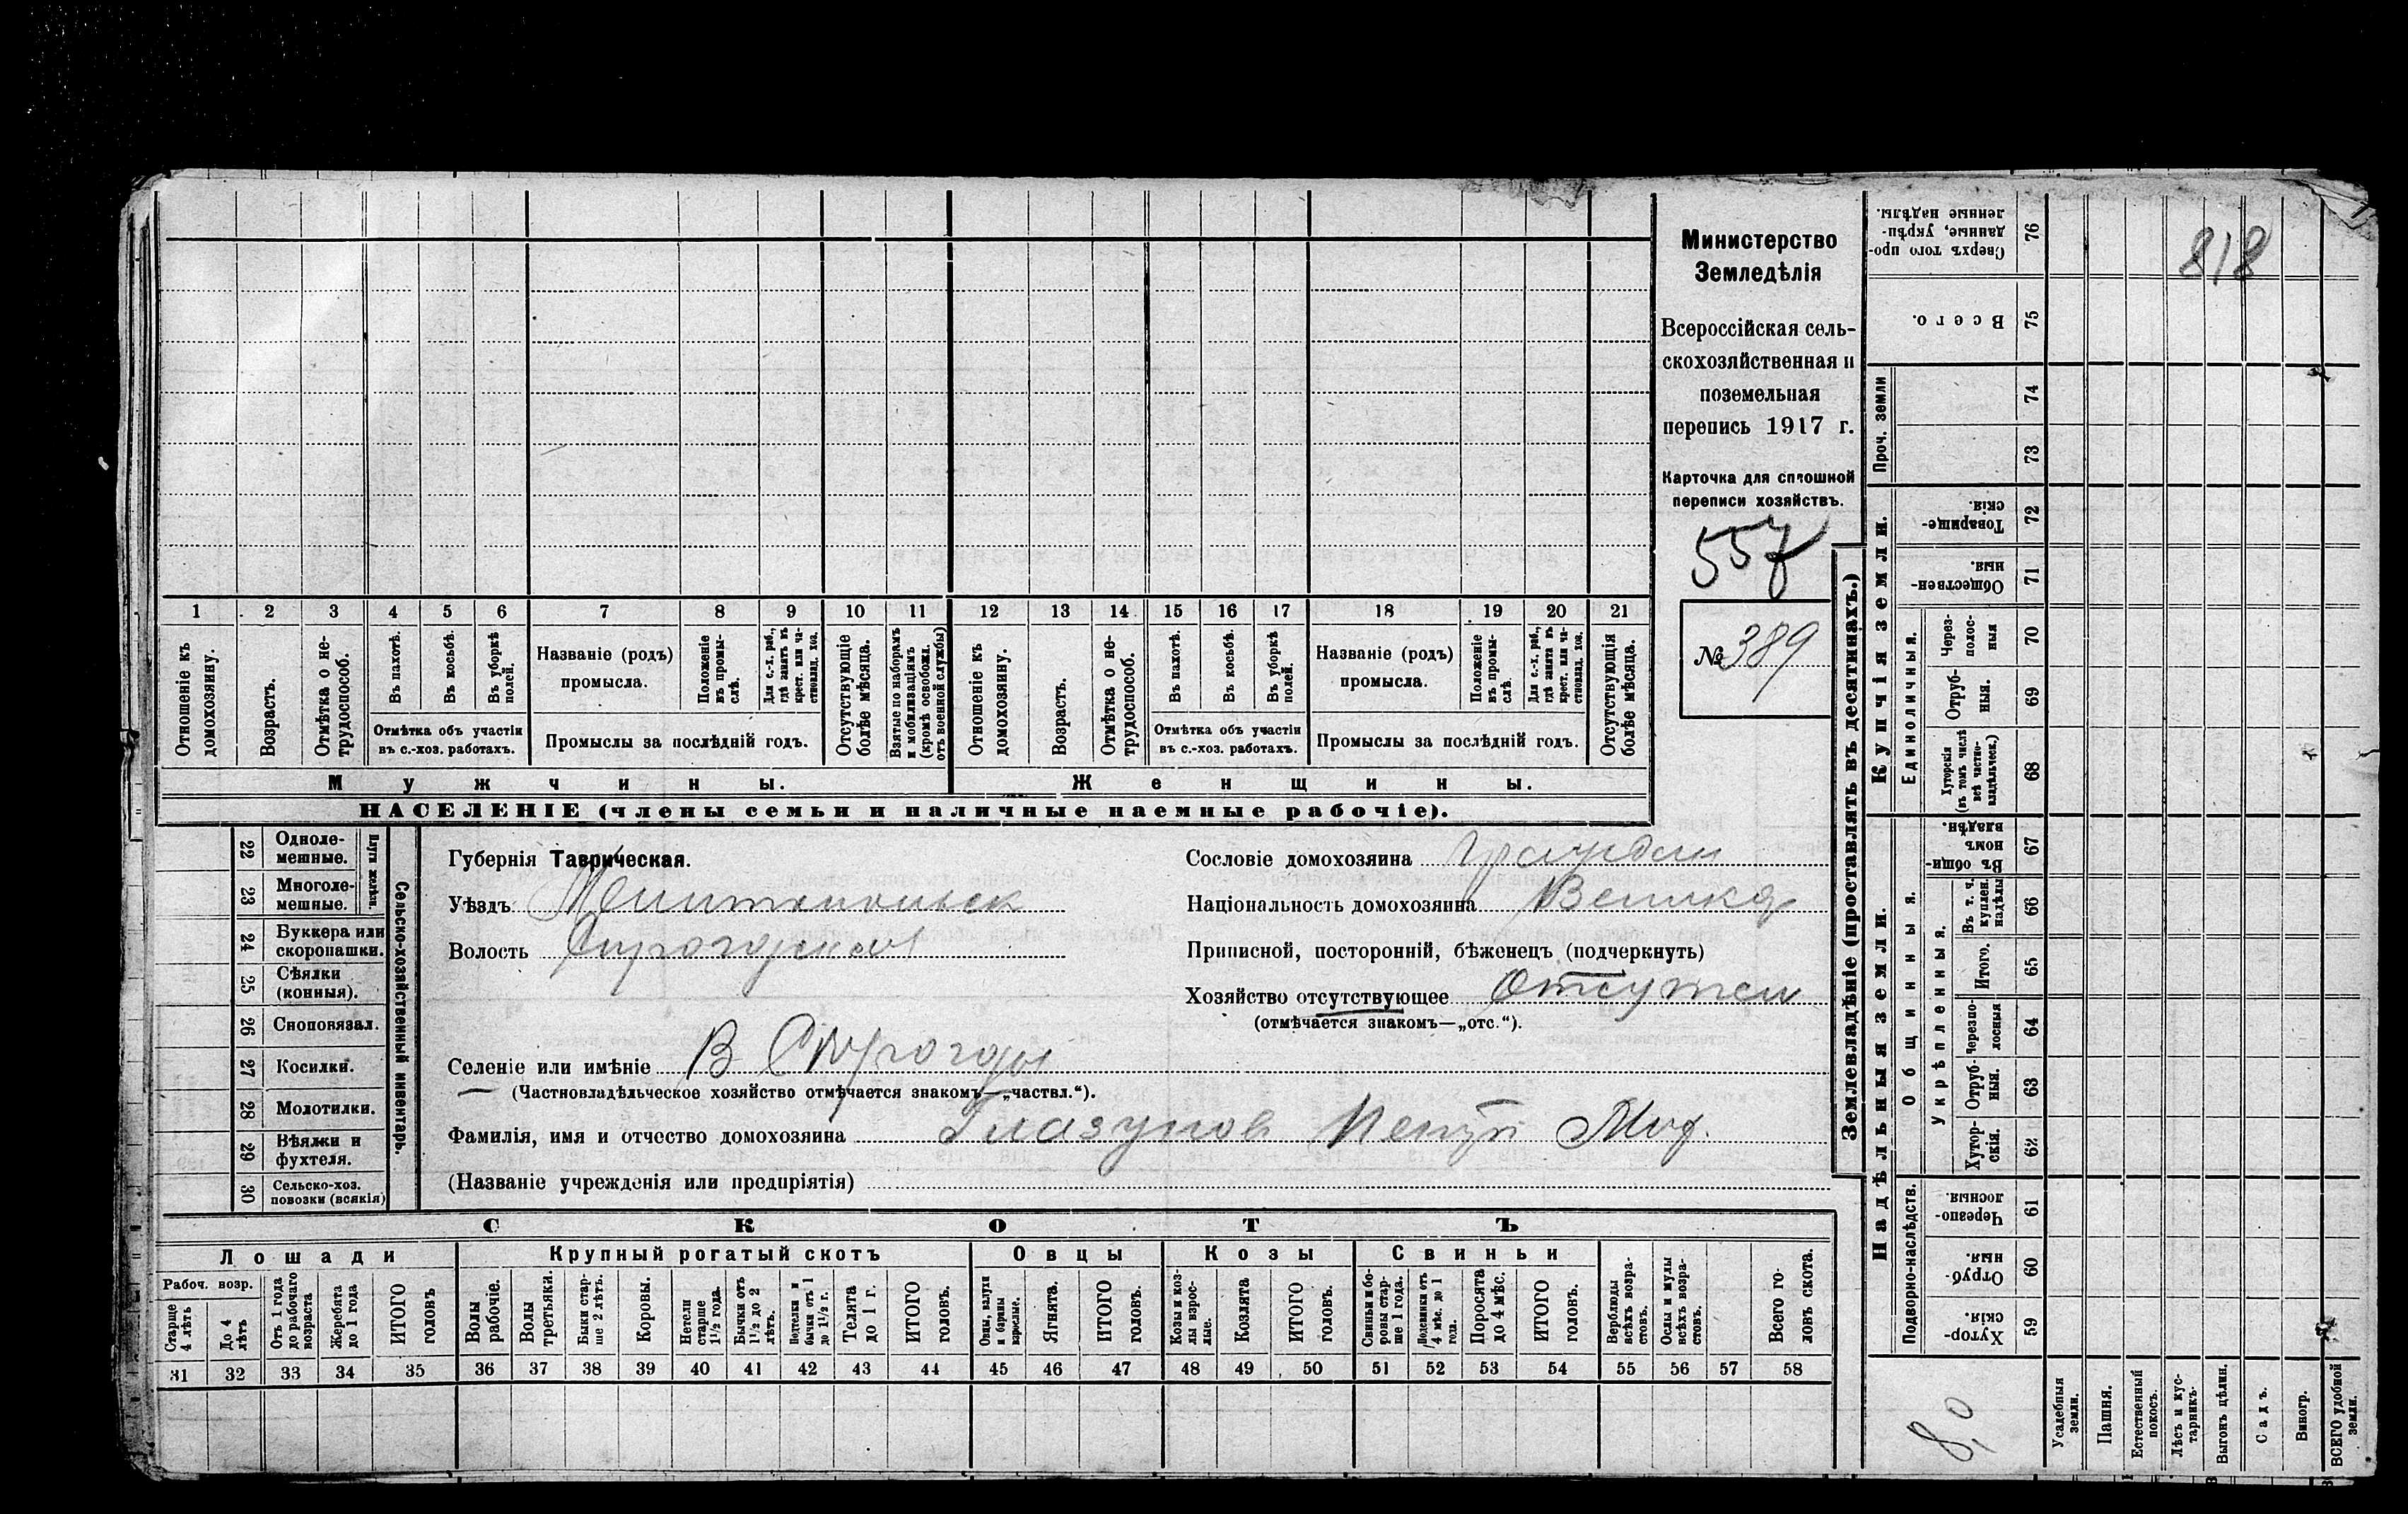 Министерство
Земледѣлія
Всероссійская сель-
скохозяйственная и
поземельная
перепись 1917 г.
Карточка для сплошной
переписи хозяйствъ.
557
№ 389
818
1 2 3 4 5 6 7 8 9 10 11 12 13 14 15 16 17 18 19 20 21
Отношеніе къ домохозяину.
Возрастъ.
Отмѣтка о не-трудоспособ.
Въ пахотѣ.
Въ косьбѣ.
Въ уборкѣ полей.
Отмѣтка объ участіи
въ с.-хоз. работахъ.
Названіе (родъ)
промысла.
Положеніе въ промы-слѣ.
Для с.-х. раб., гдѣ занятъ въ крест. или ча-стновлад. хоз.
Промыслы за послѣдній годъ.
Отсутствующіе болѣе мѣсяца.
Взятые по наборамъ и мобилизаціямъ (кромѣ освобожд. отъ военной службы)
Отношеніе къ домохозяину.
Возрастъ.
Отмѣтка о не-трудоспособ.
Въ пахотѣ.
Въ косьбѣ.
Въ уборкѣ полей.
Отмѣтка объ участіи
въ с.-хоз. работахъ.
Названіе (родъ)
промысла.
Положеніе въ промы-слѣ.
Для с.-х. раб., гдѣ занята въ крест. или ча-стновлад. хоз.
Промыслы за послѣдній годъ.
Отсутствующія болѣе мѣсяца.
Мужчины.
Женщины.
НАСЕЛЕНІЕ (члены семьи и наличные наемные рабочіе).
22 Одноле-мешные.
23 Многоле-мешные.
Плуги желѣзн.
24 Буккера или скоропашки.
25 Сѣялки (конныя).
26 Сноповязал.
27 Косилки.
28 Молотилки.
29 Вѣялки и фухтеля.
30 Сельско-хоз. повозки (всякія)
Сельско-хозяйственный инвентарь.
Губернія Таврическая.
Уѣздъ Мелитопольск
Волость Сирогозская
Сословіе домохозяина Граждан
Національность домохозяина Велика
Приписной, посторонній, бѣженецъ (подчеркнуть)
Хозяйство отсутствующее Отсутст
(отмѣчается знакомъ—„отс.“).
Селеніе или имѣніе В Сирогозы
(Частновладѣльческое хозяйство отмѣчается знакомъ—„частвл.“).
Фамилія, имя и отчество домохозяина Глазунов
(Названіе учрежденія или предпріятія)
СКОТЪ
Лошади
Крупный рогатый скотъ
Овцы
Козы
Свиньи
Рабоч. возр.
Старше 4 лѣтъ
До 4 лѣтъ
Отъ 1 года до рабочаго возраста
Жеребята до 1 года
ИТОГО головъ
Волы рабочіе.
Волы третьяки.
Быки стар-ше 2 лѣтъ.
Коровы.
Нетели старше 1½ года.
Бычки отъ 1½ до 2 лѣтъ.
Подтелки и бычки отъ 1 до 1½ г.
Телята до 1 г.
ИТОГО головъ.
Овцы, валухи и бараны взрослые.
Ягнята.
ИТОГО головъ.
Козы и коз-лы взрос-лые.
Козлята
ИТОГО головъ.
Свиньи и бо-ровы стар-ше 1 года.
Подсвинки отъ 4 мѣс. до 1 года.
Поросята до 4 мѣс.
ИТОГО головъ.
Верблюды всѣхъ возра-стовъ.
Ослы и мулы всѣхъ возра-стовъ.
Всего го-ловъ скота.
31 32 33 34 35 36 37 38 39 40 41 42 43 44 45 46 47 48 49 50 51 52 53 54 55 56 57 58
Землевладѣніе (проставлять въ десятинахъ.)
Надѣльныя земли.
Купчія земли.
Проч. земли
Подворно-наслѣдств.
Общинныя.
Укрѣпленныя.
Единоличныя.
Хутор-скія. 59
Отруб-ныя. 60
Черезпо-лосныя. 61
Хутор-скія. 62
Отруб-ныя. 63
Черезпо-лосныя 64
Итого. 65
Въ т. ч. куплен. надѣлы 66
Въ общин-номъ владѣн. 67
Хуторскія (въ томъ числѣ всѣ частно-владѣльческ.) 68
Отруб-ныя. 69
Через-полос-ныя 70
Обществен-ныя. 71
Товарище-скія. 72
73
74
Всего. 75
Сверхъ того про-данные, укрѣп-ленные надѣлы. 76
Усадебныя земли.
Пашня.
Естественный покосъ.
Лѣсъ и кус-тарникъ.
Выгонъ цѣлин.
Садъ.
Виногр.
ВСЕГО удобной земли.
8,0